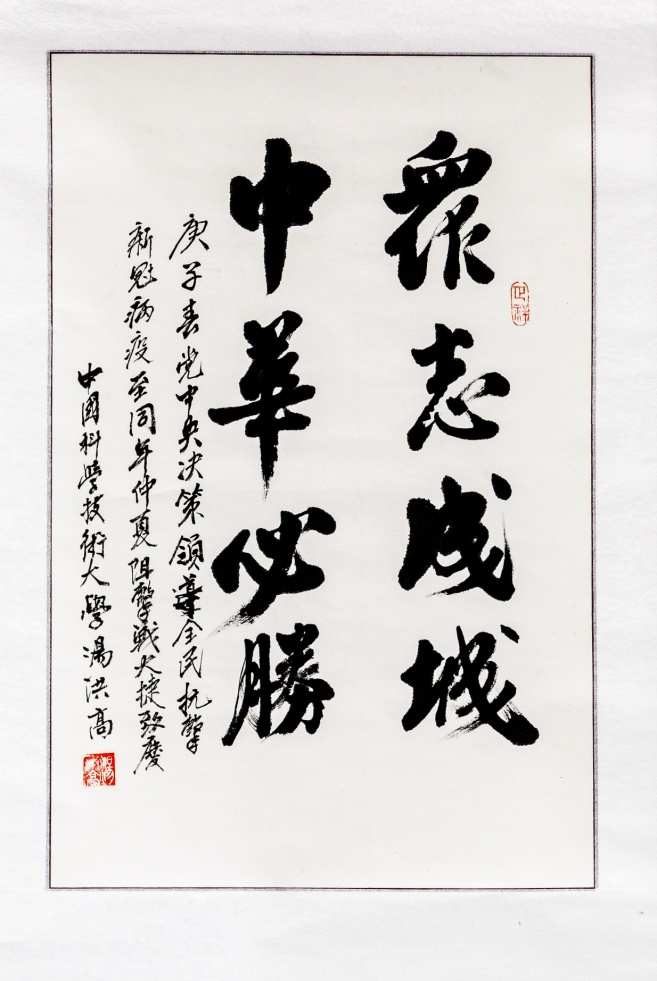 眾志成城
中華必勝
庚子春党中央决策領導全民抗擊
新冠病疫至同年仲夏阻擊戰大捷致慶
中國科學技術大學湯洪高